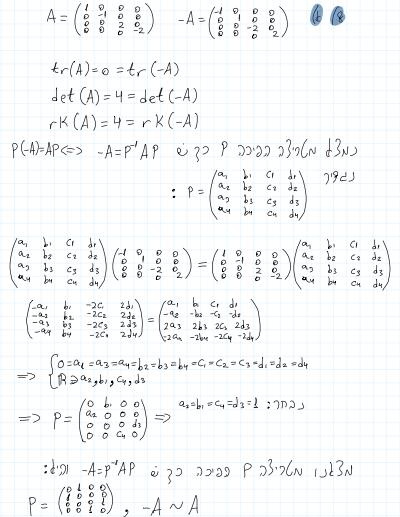 A = (1 0 0 0 / 0 -1 0 0 / 0 0 2 0 / 0 0 0 -2)   -A = (-1 0 0 0 / 0 1 0 0 / 0 0 -2 0 / 0 0 0 2)
tr(A)=0=tr(-A)
det(A)=4=det(-A)
rk(A)=4=rk(-A)
נמצא מטריצה הפיכה P כך ש -A=P⁻¹AP <=> P(-A)=AP
נגדיר P = (a₁ b₁ c₁ d₁ / a₂ b₂ c₂ d₂ / a₃ b₃ c₃ d₃ / a₄ b₄ c₄ d₄) :
(a₁ b₁ c₁ d₁ / a₂ b₂ c₂ d₂ / a₃ b₃ c₃ d₃ / a₄ b₄ c₄ d₄) (-1 0 0 0 / 0 1 0 0 / 0 0 -2 0 / 0 0 0 2) = (1 0 0 0 / 0 -1 0 0 / 0 0 2 0 / 0 0 0 -2) (a₁ b₁ c₁ d₁ / a₂ b₂ c₂ d₂ / a₃ b₃ c₃ d₃ / a₄ b₄ c₄ d₄)
(-a₁ b₁ -2c₁ 2d₁ / -a₂ b₂ -2c₂ 2d₂ / -a₃ b₃ -2c₃ 2d₃ / -a₄ b₄ -2c₄ 2d₄) = (a₁ b₁ c₁ d₁ / -a₂ -b₂ -c₂ -d₂ / 2a₃ 2b₃ 2c₃ 2d₃ / -2a₄ -2b₄ -2c₄ -2d₄)
=> { 0=a₁=a₃=a₄=b₂=b₃=b₄=c₁=c₂=c₃=d₁=d₂=d₄
ℝ∋a₂,b₁,c₄,d₃
=> P = (0 b₁ 0 0 / a₂ 0 0 0 / 0 0 0 d₃ / 0 0 c₄ 0) => נבחר: a₂=b₁=c₄=d₃=1
מצאנו מטריצה P הפיכה כך ש -A=P⁻¹AP והיא:
P = (0 1 0 0 / 1 0 0 0 / 0 0 0 1 / 0 0 1 0) , -A ~ A